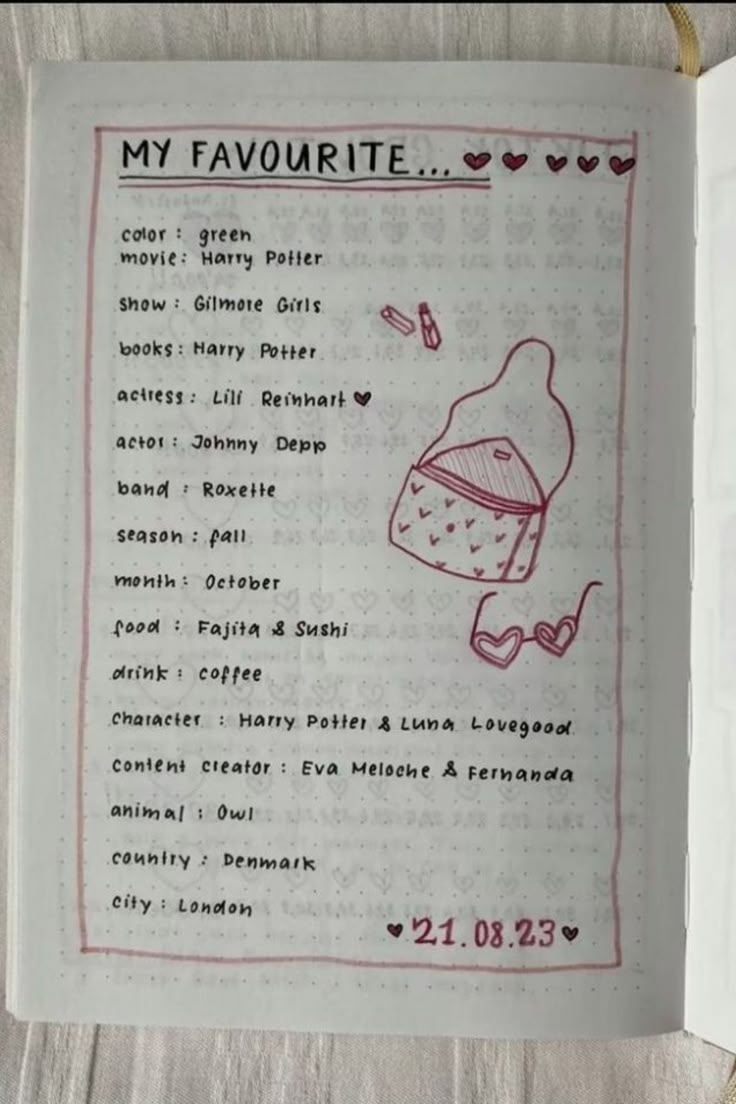 MY FAVOURITE...
color: green
movie: Harry Potter
show: Gilmore Girls
books: Harry Potter
actress: Lili Reinhart
actor: Johnny Depp
band: Roxette
season: fall
month: October
food: Fajita & Sushi
drink: coffee
character: Harry Potter & Luna Lovegood
content creator: Eva Meloche & Fernanda
animal: Owl
country: Denmark
city: London
21.08.23